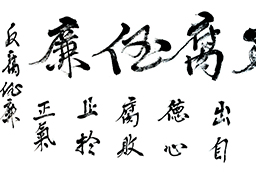 腐倡廉
出自
德心
腐敗
止於
正氣
反腐倡廉